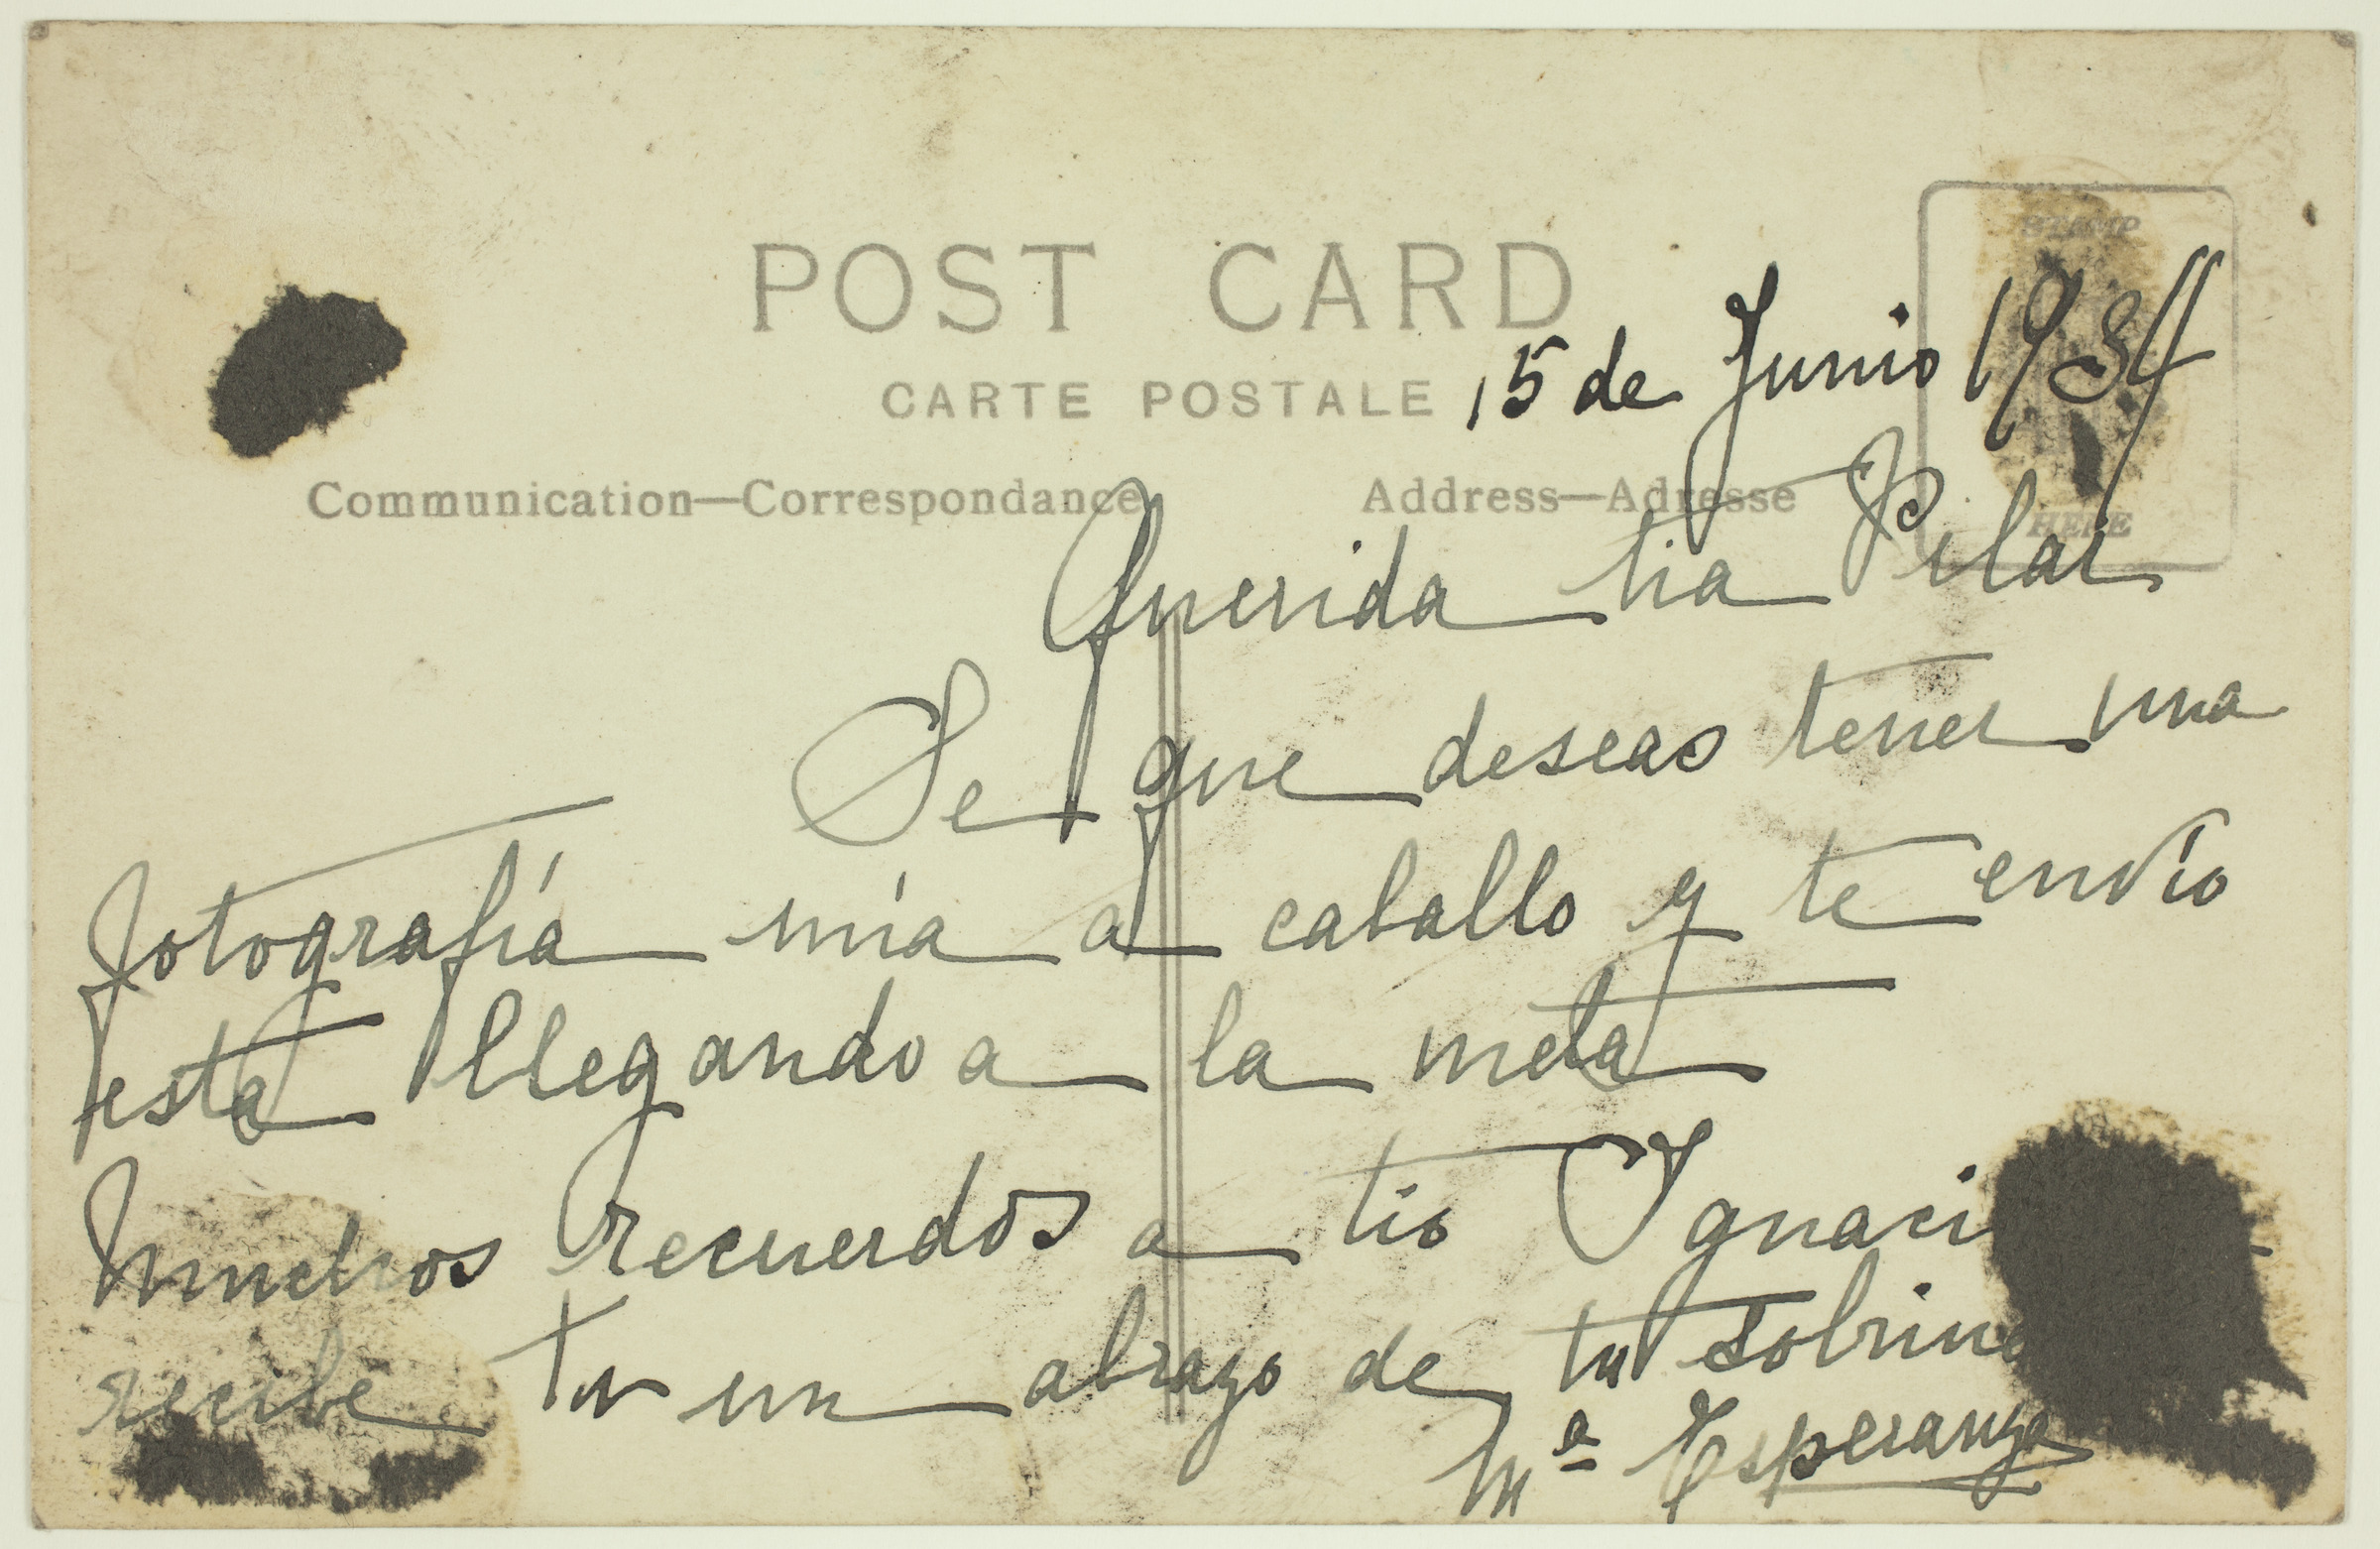 POST CARD
CARTE POSTALE
STAMP
HERE
Communication—Correspondance
Address—Adresse
15 de Junio 1934
Querida tia Pilar
Se que deseas tener una
fotografía mía a caballo y te envío
esta llegando a la meta
Muchos recuerdos a tio Ignaci
recibe tu un abrazo de tu sobrina
Mª Esperanza